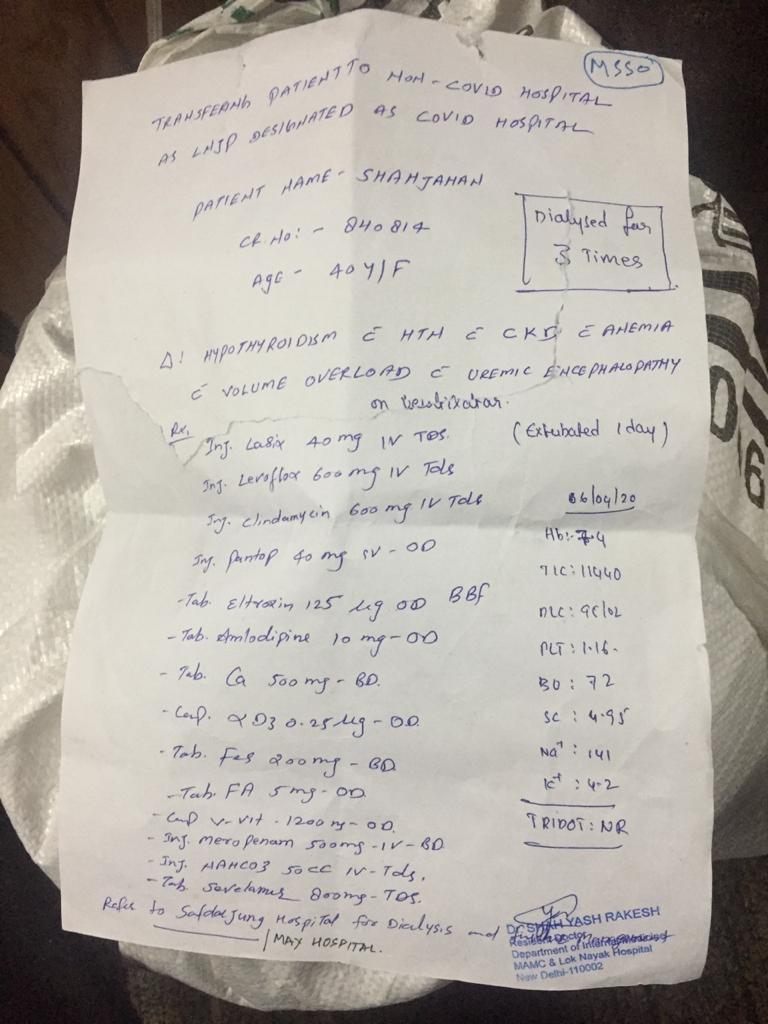 MSSO
TRANSFERING PATIENT TO NON-COVID HOSPITAL
AS LNJP DESIGNATED AS COVID HOSPITAL
PATIENT NAME - SHAHJAHAN
CR.NO: - 840814
Age - 40Y/F
Dialysed for
3 Times
Δ: HYPOTHYROIDISM c̄ HTN c̄ CKD c̄ ANEMIA
c̄ VOLUME OVERLOAD c̄ UREMIC ENCEPHALOPATHY
on
(Extubated 1 day)
Rx,
Inj. Lasix 40 mg IV TDS.
Inj. Levoflox 600 mg IV Tds
Inj. Clindamycin 600 mg IV Tds
Inj. Pantop 40 mg IV - OD
- Tab. Eltroxin 125 µg OD BBf
- Tab. Amlodipine 10 mg - OD
- Tab. Ca 500 mg - BD.
- Cap. α D3 0.25 µg - OD.
- Tab. Fes 200 mg - BD.
- Tab. FA 5 mg - OD.
- Cap V-Vit - 1200 - OD.
- Inj. Meropenam 500mg - IV - BD.
- Inj. NAHCO3 50cc IV - Tds.
- Tab. Sevelamer 800mg - TDS.
06/04/20
Hb:- 7.4
TLC: 11440
DLC: 98/02
PLT: 1.16
BU: 72
SC: 4.95
Na⁺: 141
K⁺: 4.2
TRIDOT: NR
Refer to Safdarjung Hospital for Dialysis and
/ MAX HOSPITAL.
Dr. SHAH YASH RAKESH
Resident Doctor
Department of Internal Medicine
MAMC & Lok Nayak Hospital
New Delhi-110002